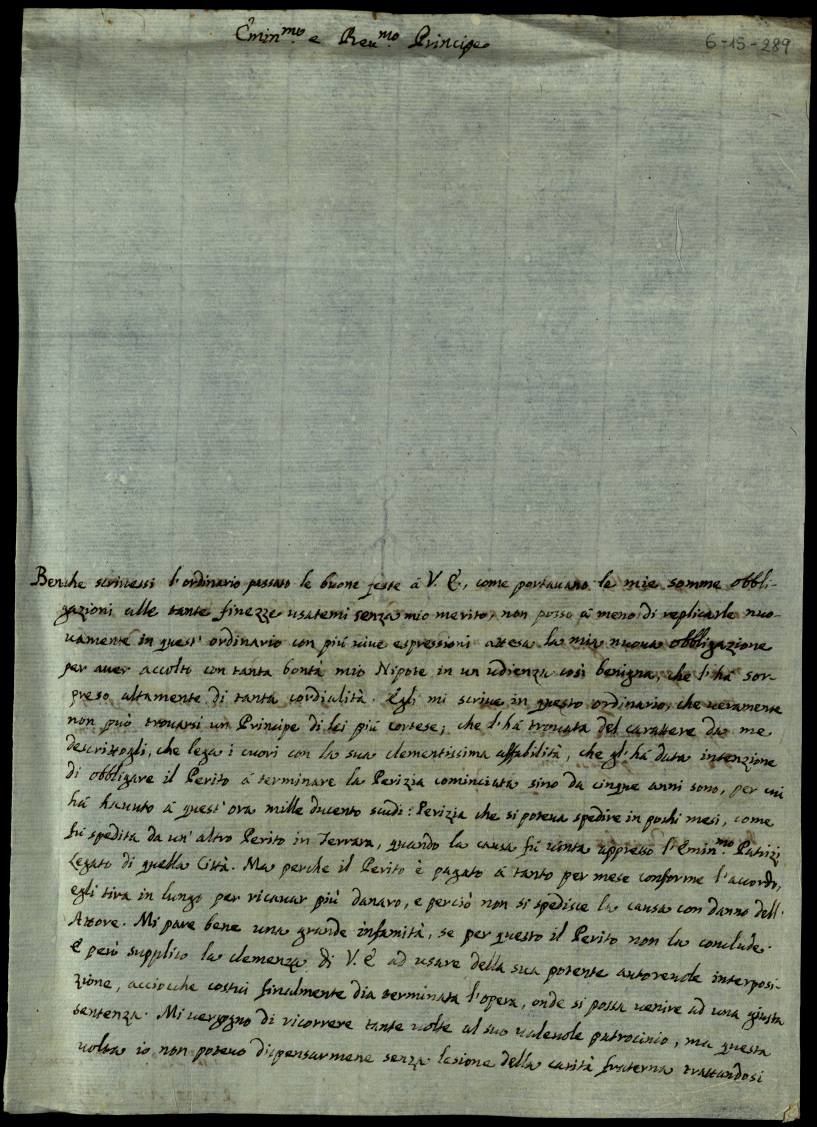 Emin.mo e Reu.mo Principe
6-15-289
Benche scriuessi l'ordinario passato le buone feste á V. E., come portauano le mie somme obbli-
gazioni alle tante finezze usatemi senza mio merito, non posso á meno di replicarle nuo-
uamente in quest'ordinario con piú uiue espressioni attesa la mia nuoua obbligazione
per auer accolto con tanta bontà mio Nipote in un udienza così benigna, che l'há sor-
preso altamente di tanta cordialità. Egli mi scriue in questo ordinario, che ueramente
non può trouarsi un Principe di lei più cortese; che l'há trouata del carattere da me
descrittogli, che lega i cuori con la sua clementissima affabilità, che gl'há data intenzione
di obbligare il Perito á terminare la Perizia cominciata sino da cinque anni sono, per cui
há hauuto á quest'ora mille ducento scudi: Perizia che si poteua spedire in pochi mesi, come
fú spedita da un'altro Perito in Ferrara, quando la causa fú uinta appresso l'Emin.mo Patrizj
Legato di quella Città. Ma perche il Perito è pagato á tanto per mese conforme l'accordo,
egli tira in lungo per ricauar più danaro, e perciò non si spedisce la causa con danno dell'
Attore. Mi pare bene una grande infamità, se per questo il Perito non la conclude.
E però supplico la clemenza di V. E. ad usare della sua potente autoreuole interposi-
zione, acciocche costui finalmente dia terminata l'opera, onde si possa uenire ad una giusta
sentenza. Mi uergogno di ricorrere tante uolte al suo ualeuole patrocinio, ma questa
uolta io non poteuo dispensarmene senza lesione della carità fraterna trattandosi